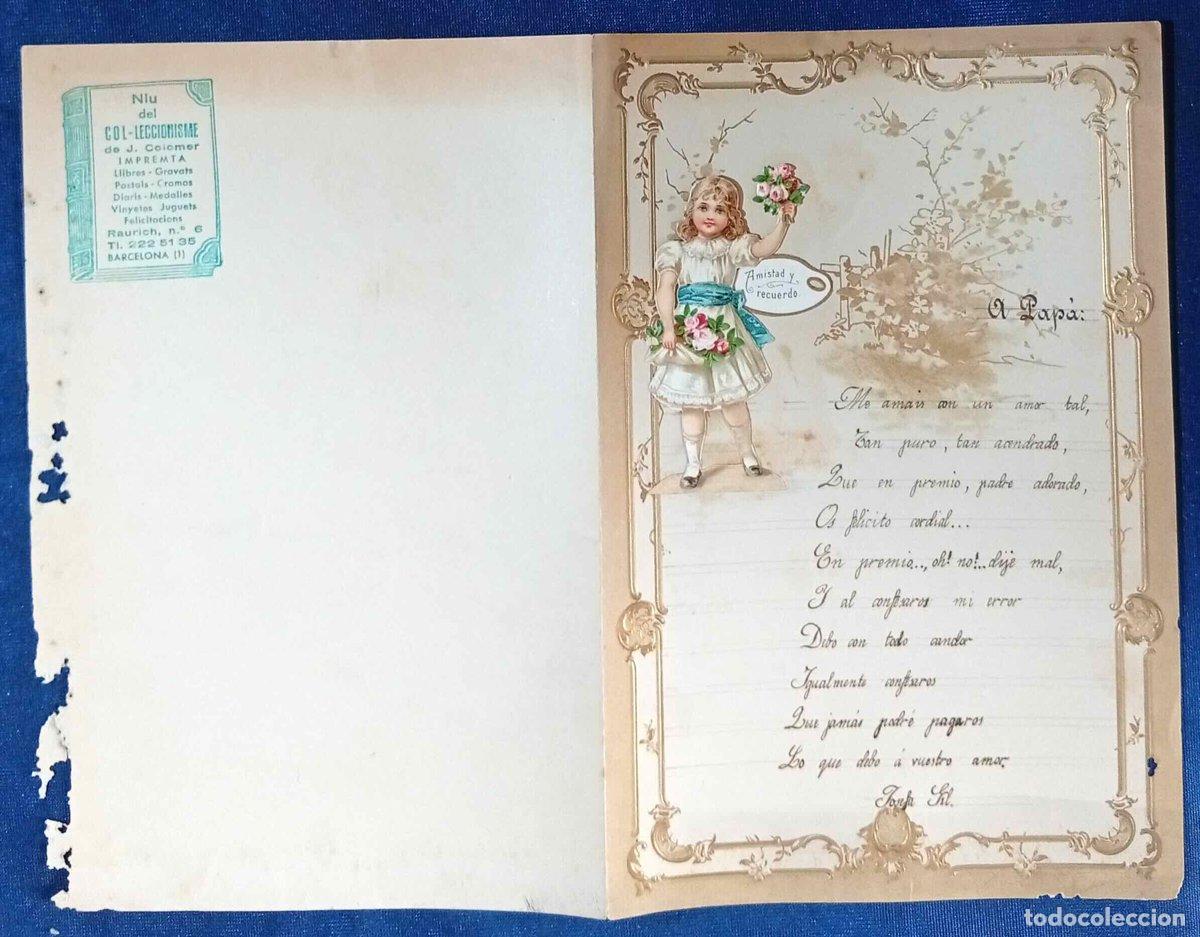 Niu
del
COL·LECCIONISME
de J. Colomer
IMPREMTA
Llibres - Gravats
Postals - Cromos
Diaris - Medalles
Vinyetes Juguets
Felicitacions
Raurich, n.º 6
Tl. 222 51 35
BARCELONA (1)
Amistad y
recuerdo.
A Papá:
Me amais con un amor tal,
Tan puro, tan acendrado,
Que en premio, padre adorado,
Os felicito cordial...
En premio..., oh! no!.. dije mal,
Y al confesaros mi error
Debo con todo candor
Igualmente confesaros
Que jamás podré pagaros
Lo que debo á vuestro amor.
todocoleccion